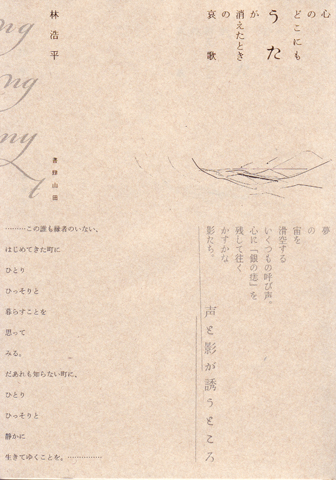 心
の
どこにも
うた
が
消えたとき
の
哀歌
林浩平
書肆山田
ng
ng
my
夢
の
宙を
滑空する
いくつもの呼び声。
心に「傷の痣」を
残して往く
かすかな
影たち。
声と影が誘うところ
………この誰も縁者のいない、
はじめてきた町に
ひとり
ひっそりと
暮らすことを
思って
みる。
だあれも知らない町に、
ひとり
ひっそりと
静かに
生きてゆくことを。……………